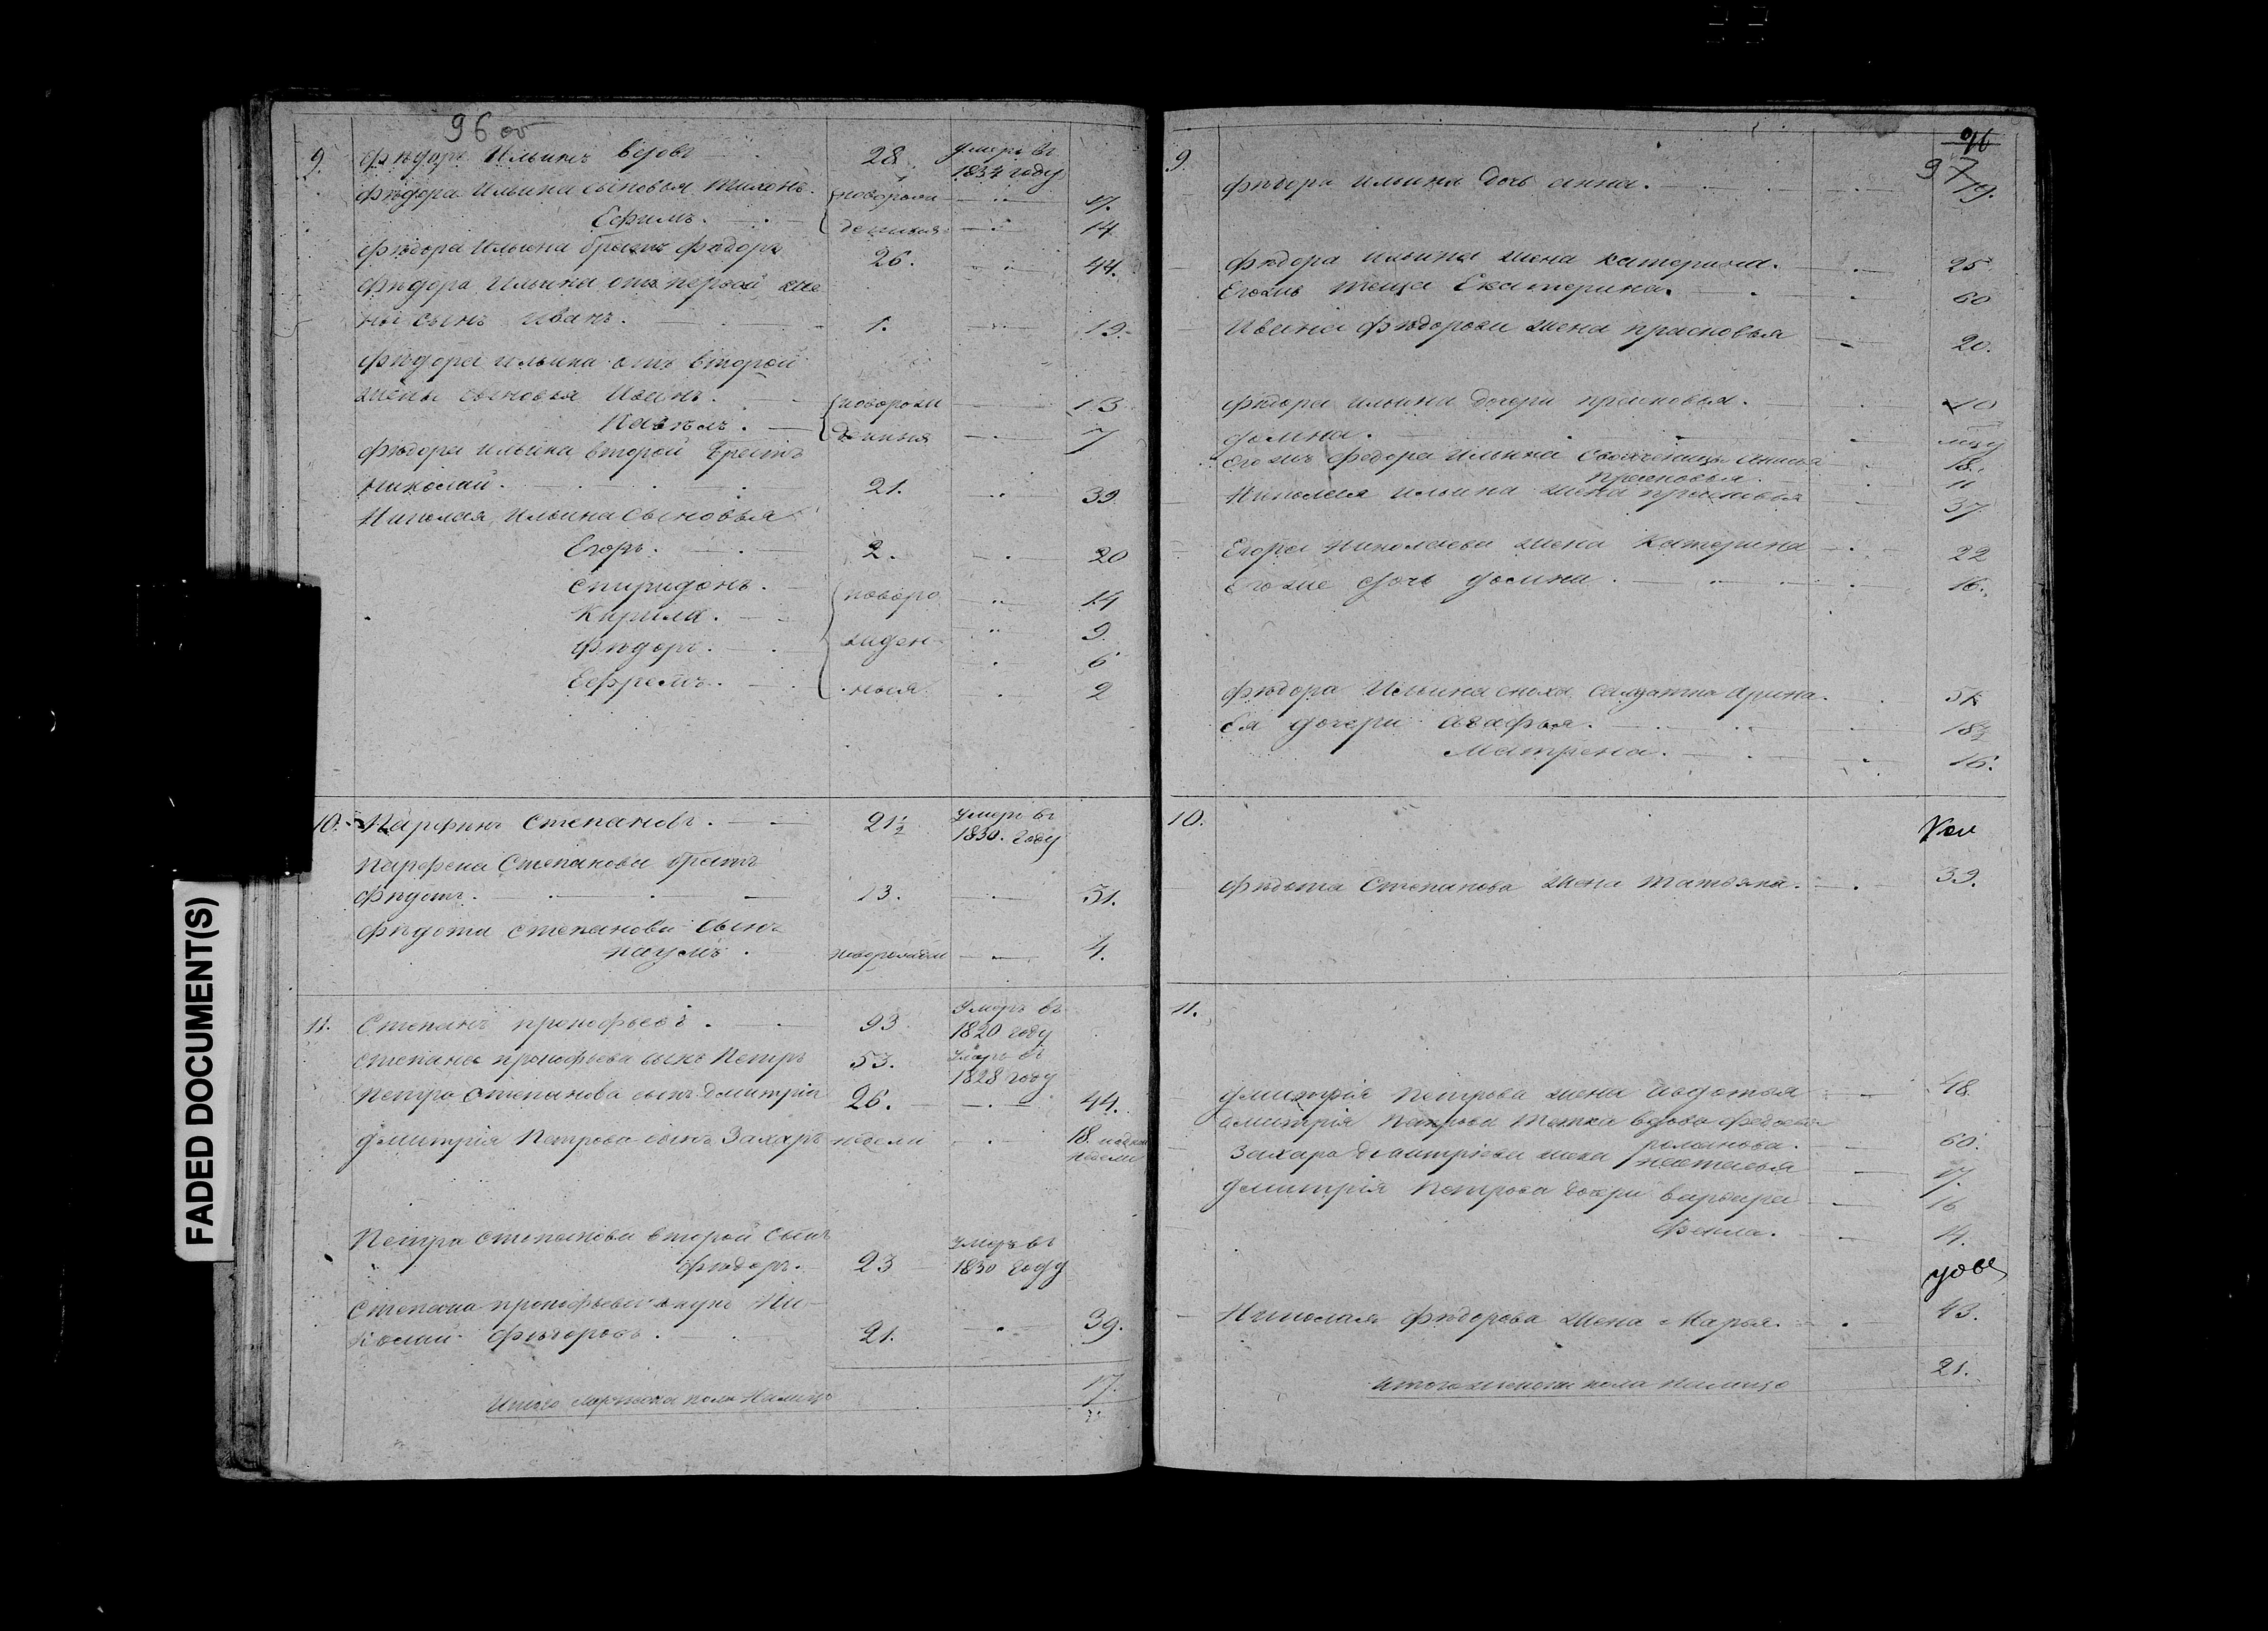 96 об
9. Фѣдоръ Ильинъ 28 умеръ въ
1834 году
Фѣдора Ильина сыновья Тихонъ. новорож 17.
Ефимъ. денныя 14
Фѣдора Ильина братъ Фѣдоръ 26. 44.
Фѣдора Ильина отъ первой же
ны сынъ Иванъ. 1. 19.
Фѣдора Ильина отъ второй
жены сыновья Иванъ. новорож 13
Павѣлъ. денныя 7
Фѣдора Ильина второй братъ
Николай. 21. 39.
Николая Ильина сыновья
Егоръ. 2. 20
Спиридонъ. новоро 14
Кирила. 9.
Фѣдоръ. жден 6
Ефремъ. ныя 2
10. Парфинъ Степановъ. 21½ умеръ въ
1830. году
Парфена Степанова братъ
Фѣдотъ. 13. 31.
Фѣдота Степанова сынъ
Наумъ. новорожден 4.
11. Степанъ Прокофьевъ. 93 Умеръ въ
1820 году
Степана Прокофьева сынъ Петръ 53. умеръ въ
1828 году
Петра Степанова сынъ Дмитрій 26. 44.
Дмитрія Петрова сынъ Захаръ недели 18.
недели
Петра Степанова второй сынъ
Фѣдоръ. 23 умеръ въ
1830 году
Степана Прокофьева внукъ Ни
колай Фѣдоровъ. 21. 39.
Итого мужеска пола налицо 17.
96
97
9. Фѣдора Ильина дочь Анна. 19.
Фѣдора Ильина жена Катерина. 25
Егожъ теща Екатерина. 60
Ивана Фѣдорова жена Прасковья 20.
Фѣдора Ильина дочери Прасковья. 10
Домна.
Егожъ Федора Ильина Анисья 18.
Прасковья. 11
Николая Ильина жена Прасковья 37
Егора Николаева жена Катерина 22
Егоже дочь Домна. 16.
Фѣдора Ильина сноха салдатка Арина.
Ея дочери Агафья. 18½
Матрена. 16.
10.
Фѣдота Степанова жена Татьяна. 39.
11.
Дмитрія Петрова жена Авдотья 48
Дмитрія Петрова тетка вдова Федосья
Романова. 60.
Захара Дмитріева жена Настасья 17.
Дмитрія Петрова дочери Варвара 16
Фекла. 14.
Николая Фѣдорова жена Марья. 43.
Итого женска пола налицо 21.
FADED DOCUMENT(S)